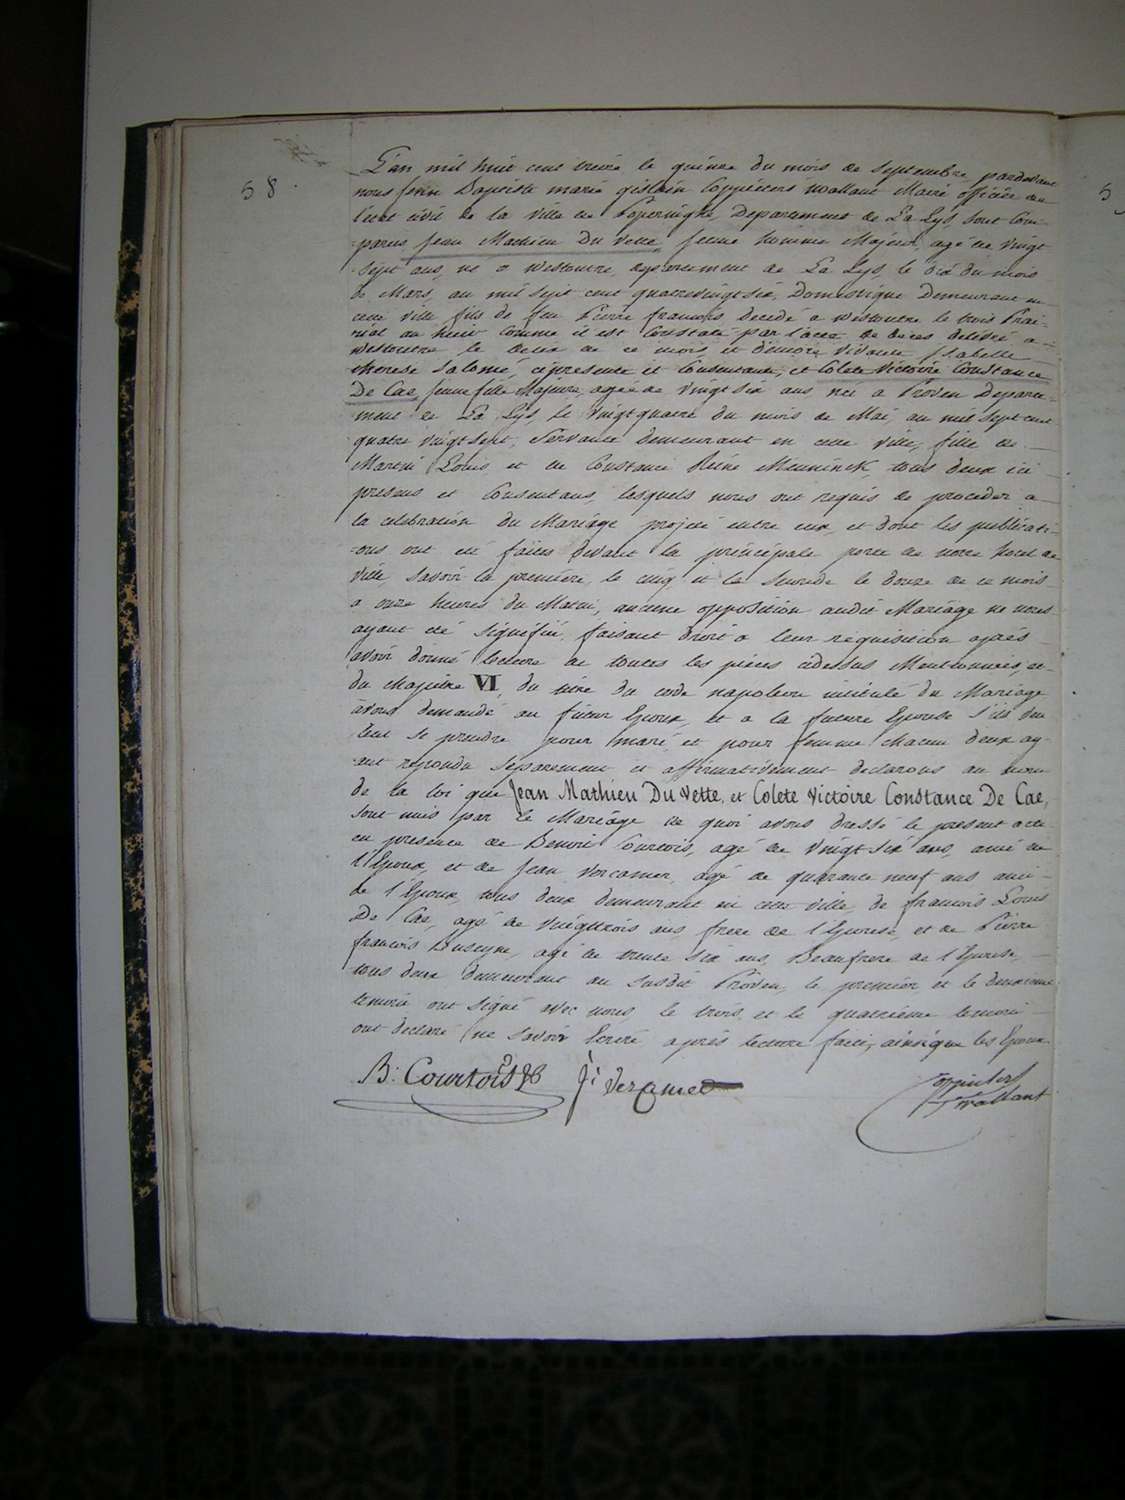 58.
L'an mil huit cent treize le quinze du mois de Septembre pardevant
nous Jean Baptiste marie gislain Coppieters Wallant Maire officier de
l'etat civil de la ville de Poperinghe, Departement de La Lys, sont Com-
parus Jean Mathieu Du Vette, jeune homme Majeur, agé de vingt
sept ans, né a Westoutre, departement de La Lys, le dix du mois
de Mars, an mil sept cent quatrevingt six, Domestique Demeurant en
cette ville fils de feu Pierre francois decedé a Westoutre le trois Prai-
rial an huit comme il est constaté par l'acte de deces delivré a
Westoutre le de ce mois, et d'encore vivante Isabelle
therese Salomé, ci presente et Consentante, et Colete Victoire Constance
De Cae, jeune fille Majeure, agée de vingt six ans née a Proven Departe-
ment de La Lys, le vingt quatre du mois de Mai, an mil sept cent
quatre vingt sept, Servante demeurant en cette ville, fille de
Martin Louis, et de Constance Reine Meuninck, tous deux ici
presens et Consentans, lesquels nous ont requis de proceder a
la celebration du Mariage projeté entre eux, et dont les publicati-
ons ont été faites devant la principale porte de notre hotel de
ville savoir la premiere, le cinq et la seconde le douze de ce mois
a onze heures du Matin, aucune opposition audit Mariage ne nous
ayant été signifiée, faisant droit a leur requisition après
avoir donné lecture de toutes les pièces cidessus Mentionnées, et
du chapitre VI, du titre du code napoleon intitulé du Mariage,
avons demandé au futur Epoux, et a la future Epouse s'ils veu-
lent se prendre pour mari, et pour femme chacun deux ay-
ant repondu separement et affirmativement declarons au nom
de la loi que Jean Mathieu Du Vette, et Colete Victoire Constance De Cae,
sont unis par le Mariage de quoi avons dressé le present acte
en presence de Benoit Courtois, agé de vingt six ans, ami de
l'Epoux, et de Jean agé de quarante neuf ans ami
de l'Epoux, tous deux demeurant en cette ville, de francois Louis
De Cae, agé de vingttrois ans, frere de l'Epouse, et de Pierre
francois agé de trente six ans, Beaufrere de l'Epouse,
tous deux demeurant au susdit Proven, le premier, et le deuxieme
temoin ont signé avec nous le trois, et le quatrième temoin
ont declaré ne savoir Ecrire après lecture faite, ainsique les Epoux
B: Courtois
Coppieters
Wallant